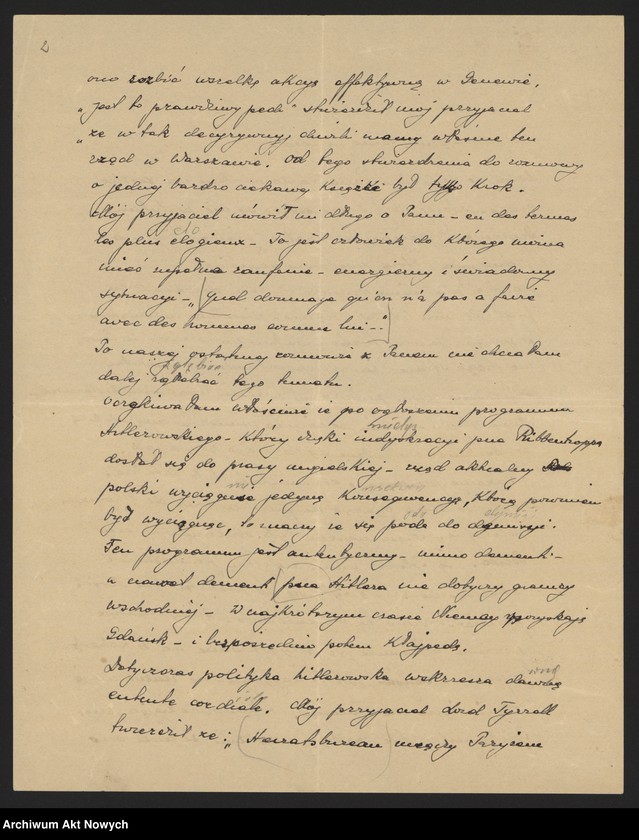 2)
ono robić wszelką akcyę effektywną w Genewie.
"jest to prawdziwy pech" stwierdził mój przyjaciel
"że w tak decyzyjnej chwili mamy właśnie ten
rząd w Warszawie. Od tego stwierdzenia do rozmowy
o jednej bardzo ciekawej Książki był tylko Krok.
Mój przyjaciel mówił mi długo o Panu – en des termes
les plus élogieux – To jest człowiek do którego można
mieć zupełne zaufanie – energiczny i świadomy
sytuacyi – "Quel dommage qu'on n'a pas a faire
avec des hommes comme lui –"
Po naszej ostatniej rozmowie z Panem nie chciałam
dalej zgłębiać tego tematu.
Oczekiwałam właściwie że po ogłoszeniu programu
Hitlerowskiego – który dzięki indyskrecyi pana Ribbentroppa
dostał się do prasy angielskiej – rząd aktualny
polski wyciągnie jedyną Konsekwencyę, Którą powinien
był wyciągnąć, to znaczy że się poda do dymisyi.
Ten programm jest autentyczny – mimo dementi –
a nawet dementi pana Hitlera nie dotyczy granicy
wschodniej – W najkrótszym czasie Niemcy
Gdańsk – i bezpośrednio potem Kłajpedę.
Dotychczas polityka hitlerowska wskrzesza dawną
entente cordiale. Mój przyjaciel Lord Tyrrell
twierdził że: "Heiratsbureau między Paryżem
Archiwum Akt Nowych